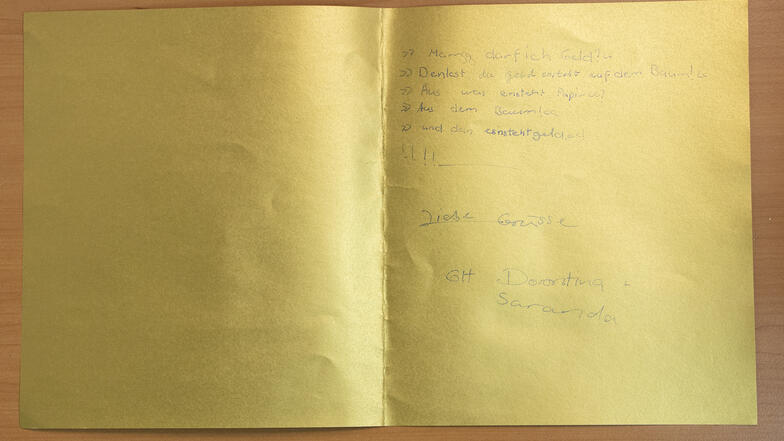 » Mama, darf ich Geld?«
» Denkst du geld entsteht auf dem Baum!«
» Aus was ensteht Papier«?
» Aus dem Baum!«
» und dan ensteht geld«!
!!!!
Liebe Grüsse
GH Dorontina
Saranda